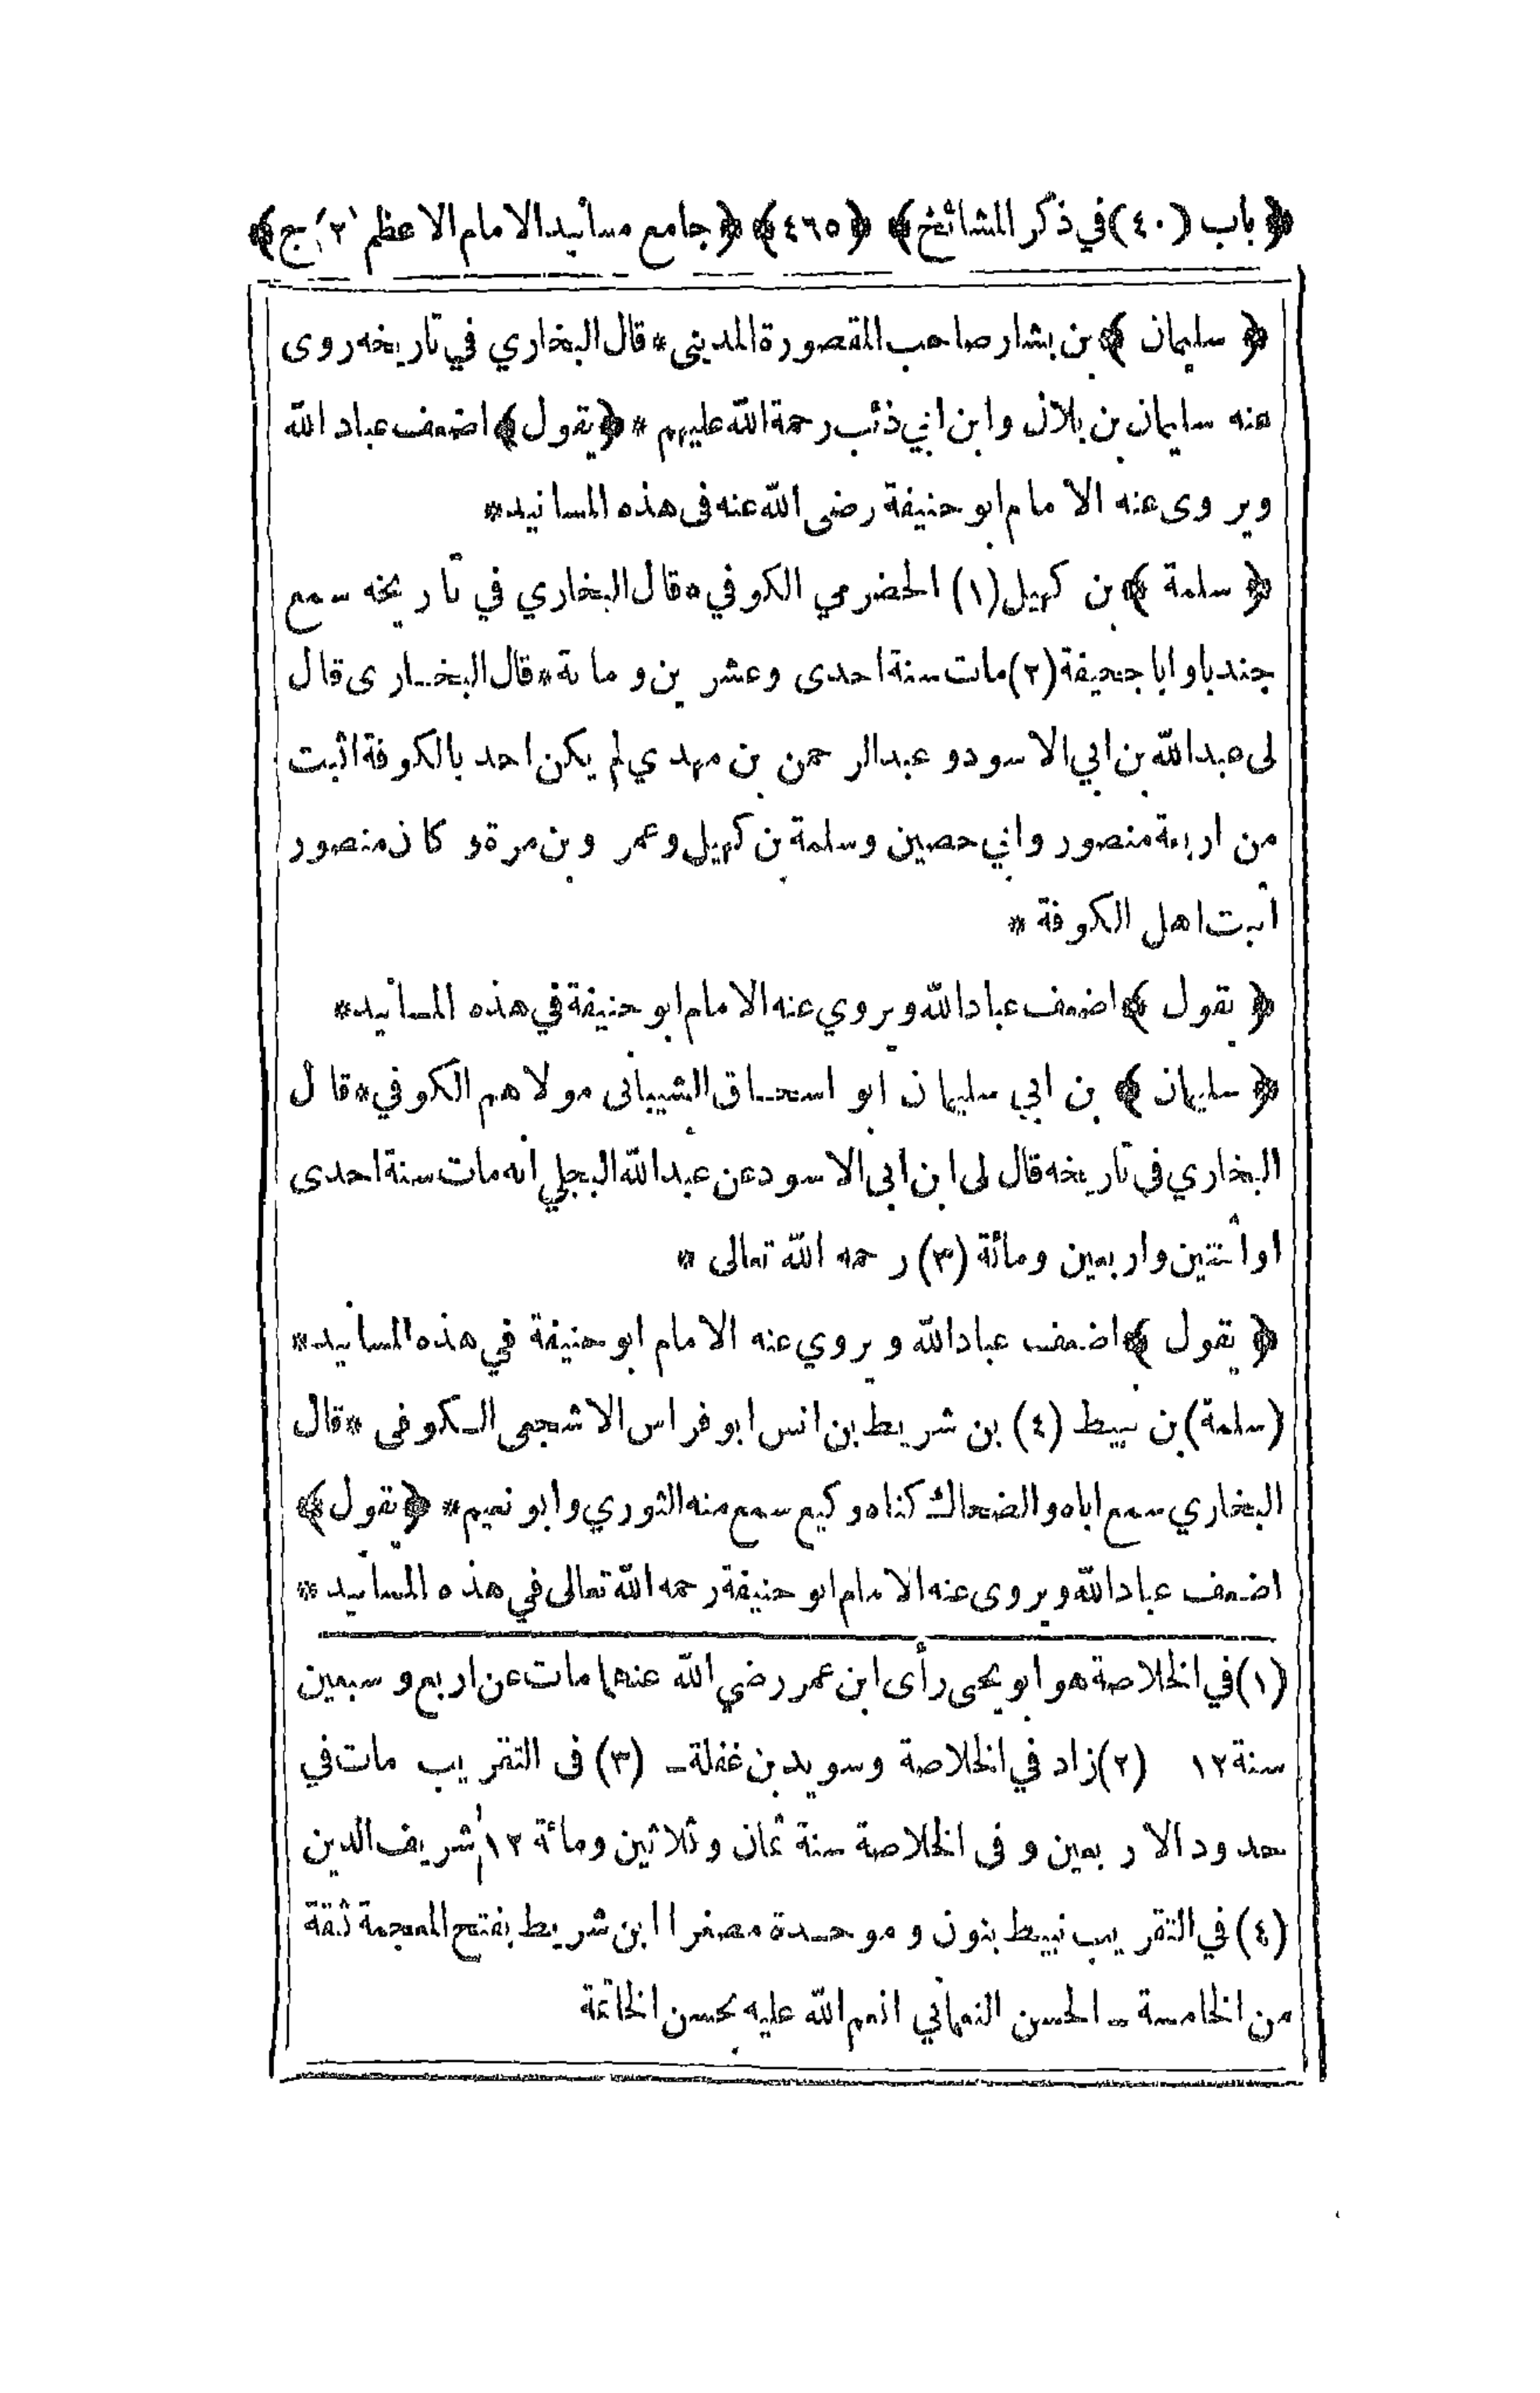 ﴿باب (٤٠) في ذكر المشائخ﴾ ﴿٤٦٥﴾ ﴿جامع مسانيد الامام الاعظم ٢ ج﴾
﴿ سليمان ﴾ بن بشار صاحب المقصورة المديني * قال البخاري في تاريخه روى
عنه سليمان بن بلال وابن ابي ذئب رحمة الله عليهم * ﴿يقول﴾ اضعف عباد الله
ويروى عنه الامام ابو حنيفة رضى الله عنه فى هذه المسانيد *
﴿ سلمة ﴾ بن كهيل (١) الحضرمي الكوفي * قال البخاري في تاريخه سمع
جندبا وابا جحيفة (٢) مات سنة احدى وعشرين ومائة * قال البخارى قال
لى عبد الله بن ابي الاسود وعبد الرحمن بن مهدي لم يكن احد بالكوفة اثبت
من اربعة منصور وابي حصين وسلمة بن كهيل وعمرو بن مرة وكان منصور
أثبت اهل الكوفة *
﴿ يقول ﴾ اضعف عباد الله ويروي عنه الامام ابو حنيفة في هذه المسانيد *
﴿ سليمان ﴾ بن ابي سليمان ابو اسحاق الشيباني مولاهم الكوفي * قال
البخاري فى تاريخه قال لى ابن ابى الاسود عن عبد الله البجلي انه مات سنة احدى
او أثنتين واربعين ومائة (٣) رحمه الله تعالى *
﴿ يقول ﴾ اضعف عباد الله ويروي عنه الامام ابو حنيفة في هذه المسانيد *
(سلمة) بن نبيط (٤) بن شريط بن انس ابو فراس الاشجعى الكوفى * قال
البخاري سمع اباه والضحاك كناه وكيع سمع منه الثوري وابو نعيم * ﴿يقول﴾
اضعف عباد الله ويروى عنه الامام ابو حنيفة رحمه الله تعالى في هذه المسانيد *
(١) في الخلاصة هو ابو يحيى رأى ابن عمر رضي الله عنهما مات عن اربع وسبعين
سنة ١٢ (٢) زاد في الخلاصة وسويد بن غفلة ـ (٣) فى التقريب مات في
حدود الاربعين و فى الخلاصة سنة ثمان وثلاثين ومائة ١٢ شريف الدين
(٤) في التقريب نبيط بنون وموحدة مصغرا ابن شريط بفتح المعجمة ثقة
من الخامسة ـ الحسن النعماني انعم الله عليه بحسن الخاتمة